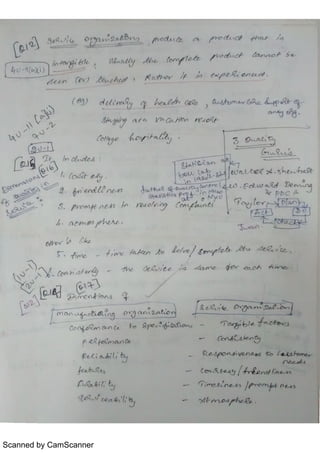 [Q12] Service organisations produce a product that is
4U-1(a)(i) intangible, Usually the complete product cannot be
seen (or) touched, Rather it is experienced.
(eg) delivery of health care, customer care support of
any org.
Staying at a vacation resort
College hospitality.
4U-11
4U-2
3 Quality
Gurus
It includes:
1. Courtesy.
2. friendliness
3. promptness in resolving Complaints
4. atmosphere.
Dimensions of
Service:
Statistician
bell lab
Edward Deming
PDCA
Taylor Plan Do
Act Check
Juran
other is like
5. time - time taken to Solve/Complete the service.
6. Consistency - the service is same for each time.
[Q17]
Dimensions of
manufacturing organization
Service Organisation
Conformance to Specifications - Tangible factors
performance - Consistency
Reliability - Responsiveness to Customer
needs
features - Courtesy / friendliness
Durability - Timeliness / promptness
Serviceability - Atmosphere.
Scanned by CamScanner